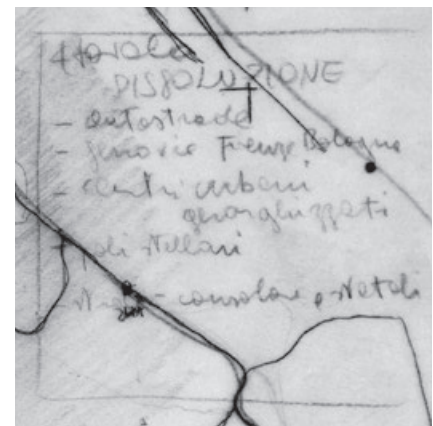 4 tavola
DISSOLUZIONE
- autostrade
- ferrovia Firenze Bologna
- centri urbani
gerarchizzati
- poli stellari
- consolari e statali